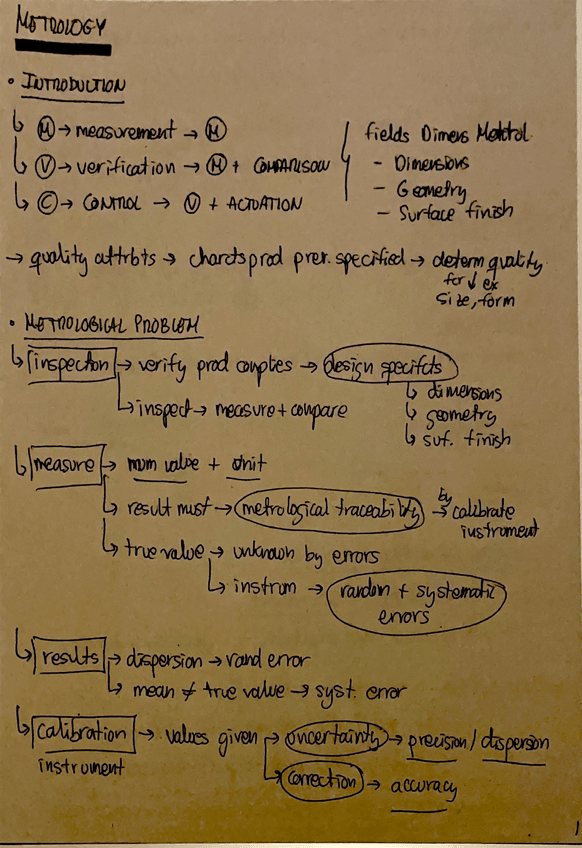 METROLOGY
• INTRODUCTION
↳ Ⓜ → measurement → Ⓜ
↳ Ⓥ → verification → Ⓜ + COMPARISON
↳ Ⓒ → CONTROL → Ⓥ + ACTUATION
fields Dimens Metrol.
- Dimensions
- Geometry
- Surface finish
→ quality attrbts → chards prod prev. specified → determ quality
for ↓ ex
size, form
• METROLOGICAL PROBLEM
↳ inspection → verify prod complies → design specifcts
↳ dimensions
↳ inspect → measure + compare
↳ geometry
↳ suf. finish
↳ measure → num value + unit
↳ result must → metrological traceability → By calibrate
instrument
↳ true value → unknown by errors
↳ instrum → random + systematic
errors
↳ results → dispersion → rand error
↳ mean ≠ true value → syst. error
↳ calibration → values given → uncertainty → precision / dispersion
instrument
↳ correction → accuracy
1